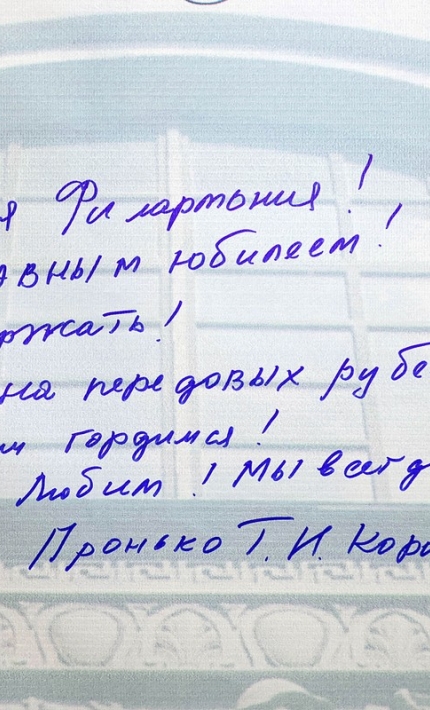 я Филармония!
авным юбилеем!
ржать!
на передовых рубе
м гордимся!
Любим! Мы всегд
Пронько Т. И. Кор